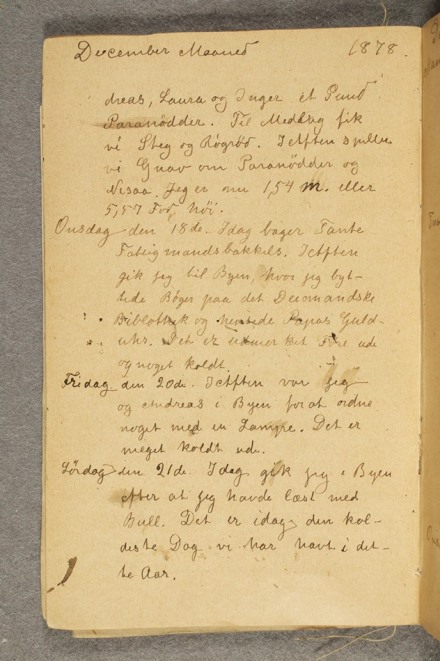 December Maaned 1878.
dreas, Laura og Inger et Pund
Paranødder. Til Meddag fik
vi Steg og Røgrød. Iaften spillte
vi Gnav om Paranødder og
Nisaa. Jeg er nu 1,54 m. eller
5,57 Fod høi.
Onsdag den 18de. Idag bager Tante
Fatigmandsbakkels. Iaften
gik jeg til Byen, hvor jeg byt-
tede Bøger paa det Deismandske
Bibliothek og hentede Papas Guld-
uhr. Det er udmerket Føre ude
og noget koldt.
Fridag den 20de. Iaften var jeg
og Andreas i Byen for at ordne
noget med en Lampe. Det er
meget koldt ude.
Lørdag den 21de. Idag gik jeg i Byen
efter at jeg havde læst med
Bull. Det er idag den kol-
deste Dag vi har havt i det-
te Aar.